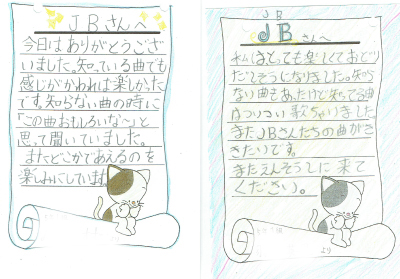 JBさんへ
今日はありがとうござ
いました。知っている曲でも
感じがかわれば楽しかった
です。知らない曲の時に
「この曲おもしろいな〜」と
思って聞いていました。
またどこかであえるのを
楽しみにしています
JB
JBさんへ
私はとっても楽しくておどり
だしそうになりました。知ら
ない曲もあったけど知ってる曲
はついつい歌っちゃいました
またJBさんたちの曲がき
きたいです。
またえんそうしに来て
ください。
より